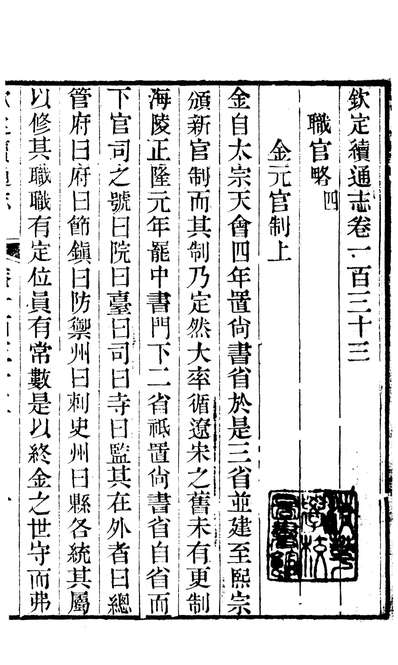 欽定續通志卷一百三十三
職官略四
金元官制上
金自太宗天會四年置尙書省於是三省並建至熙宗
頒新官制而其制乃定然大率循遼宋之舊未有更制
海陵正隆元年罷中書門下二省祗置尙書省自省而
下官司之號曰院曰臺曰司曰寺曰監其在外者曰總
管府曰府曰節鎭曰防禦州曰刺史州曰縣各統其屬
以修其職職有定位員有常數是以終金之世守而弗